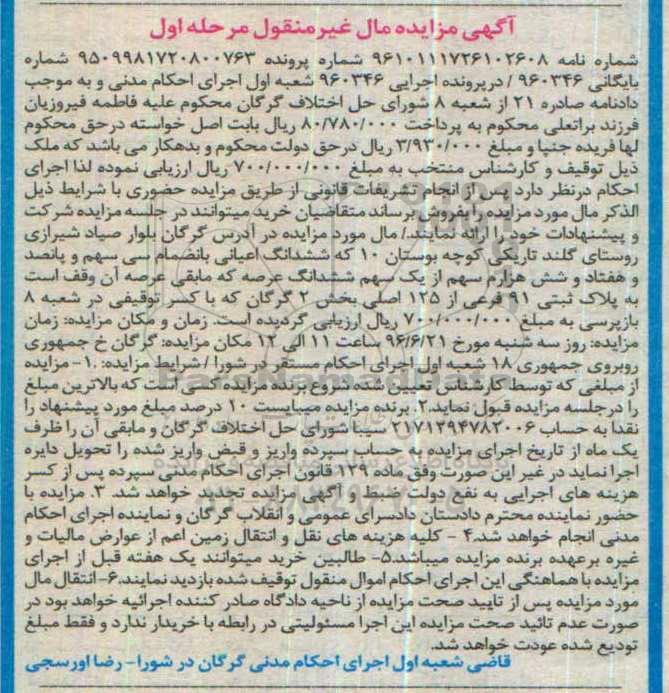 آگهی مزایده مال غیرمنقول مرحله اول
شماره نامه ۹۶۱۰۱۱۱۷۲۶۱۰۲۶۰۸ شماره پرونده ۹۵۰۹۹۸۱۷۲۰۸۰۰۷۶۳ شماره
بایگانی ۹۶۰۳۴۶ / درپرونده اجرایی ۹۶۰۳۴۶ شعبه اول اجرای احکام مدنی و به موجب
دادنامه صادره ۲۱ از شعبه ۸ شورای حل اختلاف گرگان محکوم علیه فاطمه فیروزیان
فرزند براتعلی محکوم به پرداخت ۸۰/۷۸۰/۰۰۰ ریال بابت اصل خواسته درحق محکوم
لها فریده جنپا و مبلغ ۳/۹۳۰/۰۰۰ ریال درحق دولت محکوم و بدهکار می باشد که ملک
ذیل توقیف و کارشناس منتخب به مبلغ ۷۰۰/۰۰۰/۰۰۰ ریال ارزیابی نموده لذا اجرای
احکام درنظر دارد پس از انجام تشریفات قانونی از طریق مزایده حضوری با شرایط ذیل
الذکر مال مورد مزایده را بفروش برساند متقاضیان خرید میتوانند در جلسه مزایده شرکت
و پیشنهادات خود را ارائه نمایند./ مال مورد مزایده در آدرس گرگان بلوار صیاد شیرازی
روستای گلند تاریکی کوچه بوستان ۱۰ که ششدانگ اعیانی بانضمام سی سهم و پانصد
و هفتاد و شش هزارم سهم از یک سهم ششدانگ عرصه که مابقی عرصه آن وقف است
به پلاک ثبتی ۹۱ فرعی از ۱۲۵ اصلی بخش ۲ گرگان که با کسر توقیفی در شعبه ۸
بازپرسی به مبلغ ۷۰۰/۰۰۰/۰۰۰ ریال ارزیابی گردیده است. زمان و مکان مزایده: زمان
مزایده: روز سه شنبه مورخ ۹۶/۶/۲۱ ساعت ۱۱ الی ۱۲ مکان مزایده: گرگان خ جمهوری
روبروی جمهوری ۱۸ شعبه اول اجرای احکام مستقر در شورا / شرایط مزایده: ۱- مزایده
از مبلغی که توسط کارشناس تعیین شده شروع برنده مزایده کسی است که بالاترین مبلغ
را درجلسه مزایده قبول نماید.۲. برنده مزایده میبایست ۱۰ درصد مبلغ مورد پیشنهاد را
نقدا به حساب ۲۱۷۱۲۹۴۷۸۲۰۰۶ سیبا شورای حل اختلاف گرگان و مابقی آن را ظرف
یک ماه از تاریخ اجرای مزایده به حساب سپرده واریز و قبض واریز شده را تحویل دایره
اجرا نماید در غیر این صورت وفق ماده ۱۲۹ قانون اجرای احکام مدنی سپرده پس از کسر
هزینه های اجرایی به نفع دولت ضبط و آگهی مزایده تجدید خواهد شد. ۳. مزایده با
حضور نماینده محترم دادستان دادسرای عمومی و انقلاب گرگان و نماینده اجرای احکام
مدنی انجام خواهد شد.۴ - کلیه هزینه های نقل و انتقال زمین اعم از عوارض مالیات و
غیره برعهده برنده مزایده میباشد.۵- طالبین خرید میتوانند یک هفته قبل از اجرای
مزایده با هماهنگی این اجرای احکام اموال منقول توقیف شده بازدید نمایند.۶- انتقال مال
مورد مزایده پس از تایید صحت مزایده از ناحیه دادگاه صادر کننده اجرائیه خواهد بود در
صورت عدم تائید صحت مزایده این اجرا مسئولیتی در رابطه با خریدار ندارد و فقط مبلغ
تودیع شده عودت خواهد شد.
قاضی شعبه اول اجرای احکام مدنی گرگان در شورا- رضا اورسجی